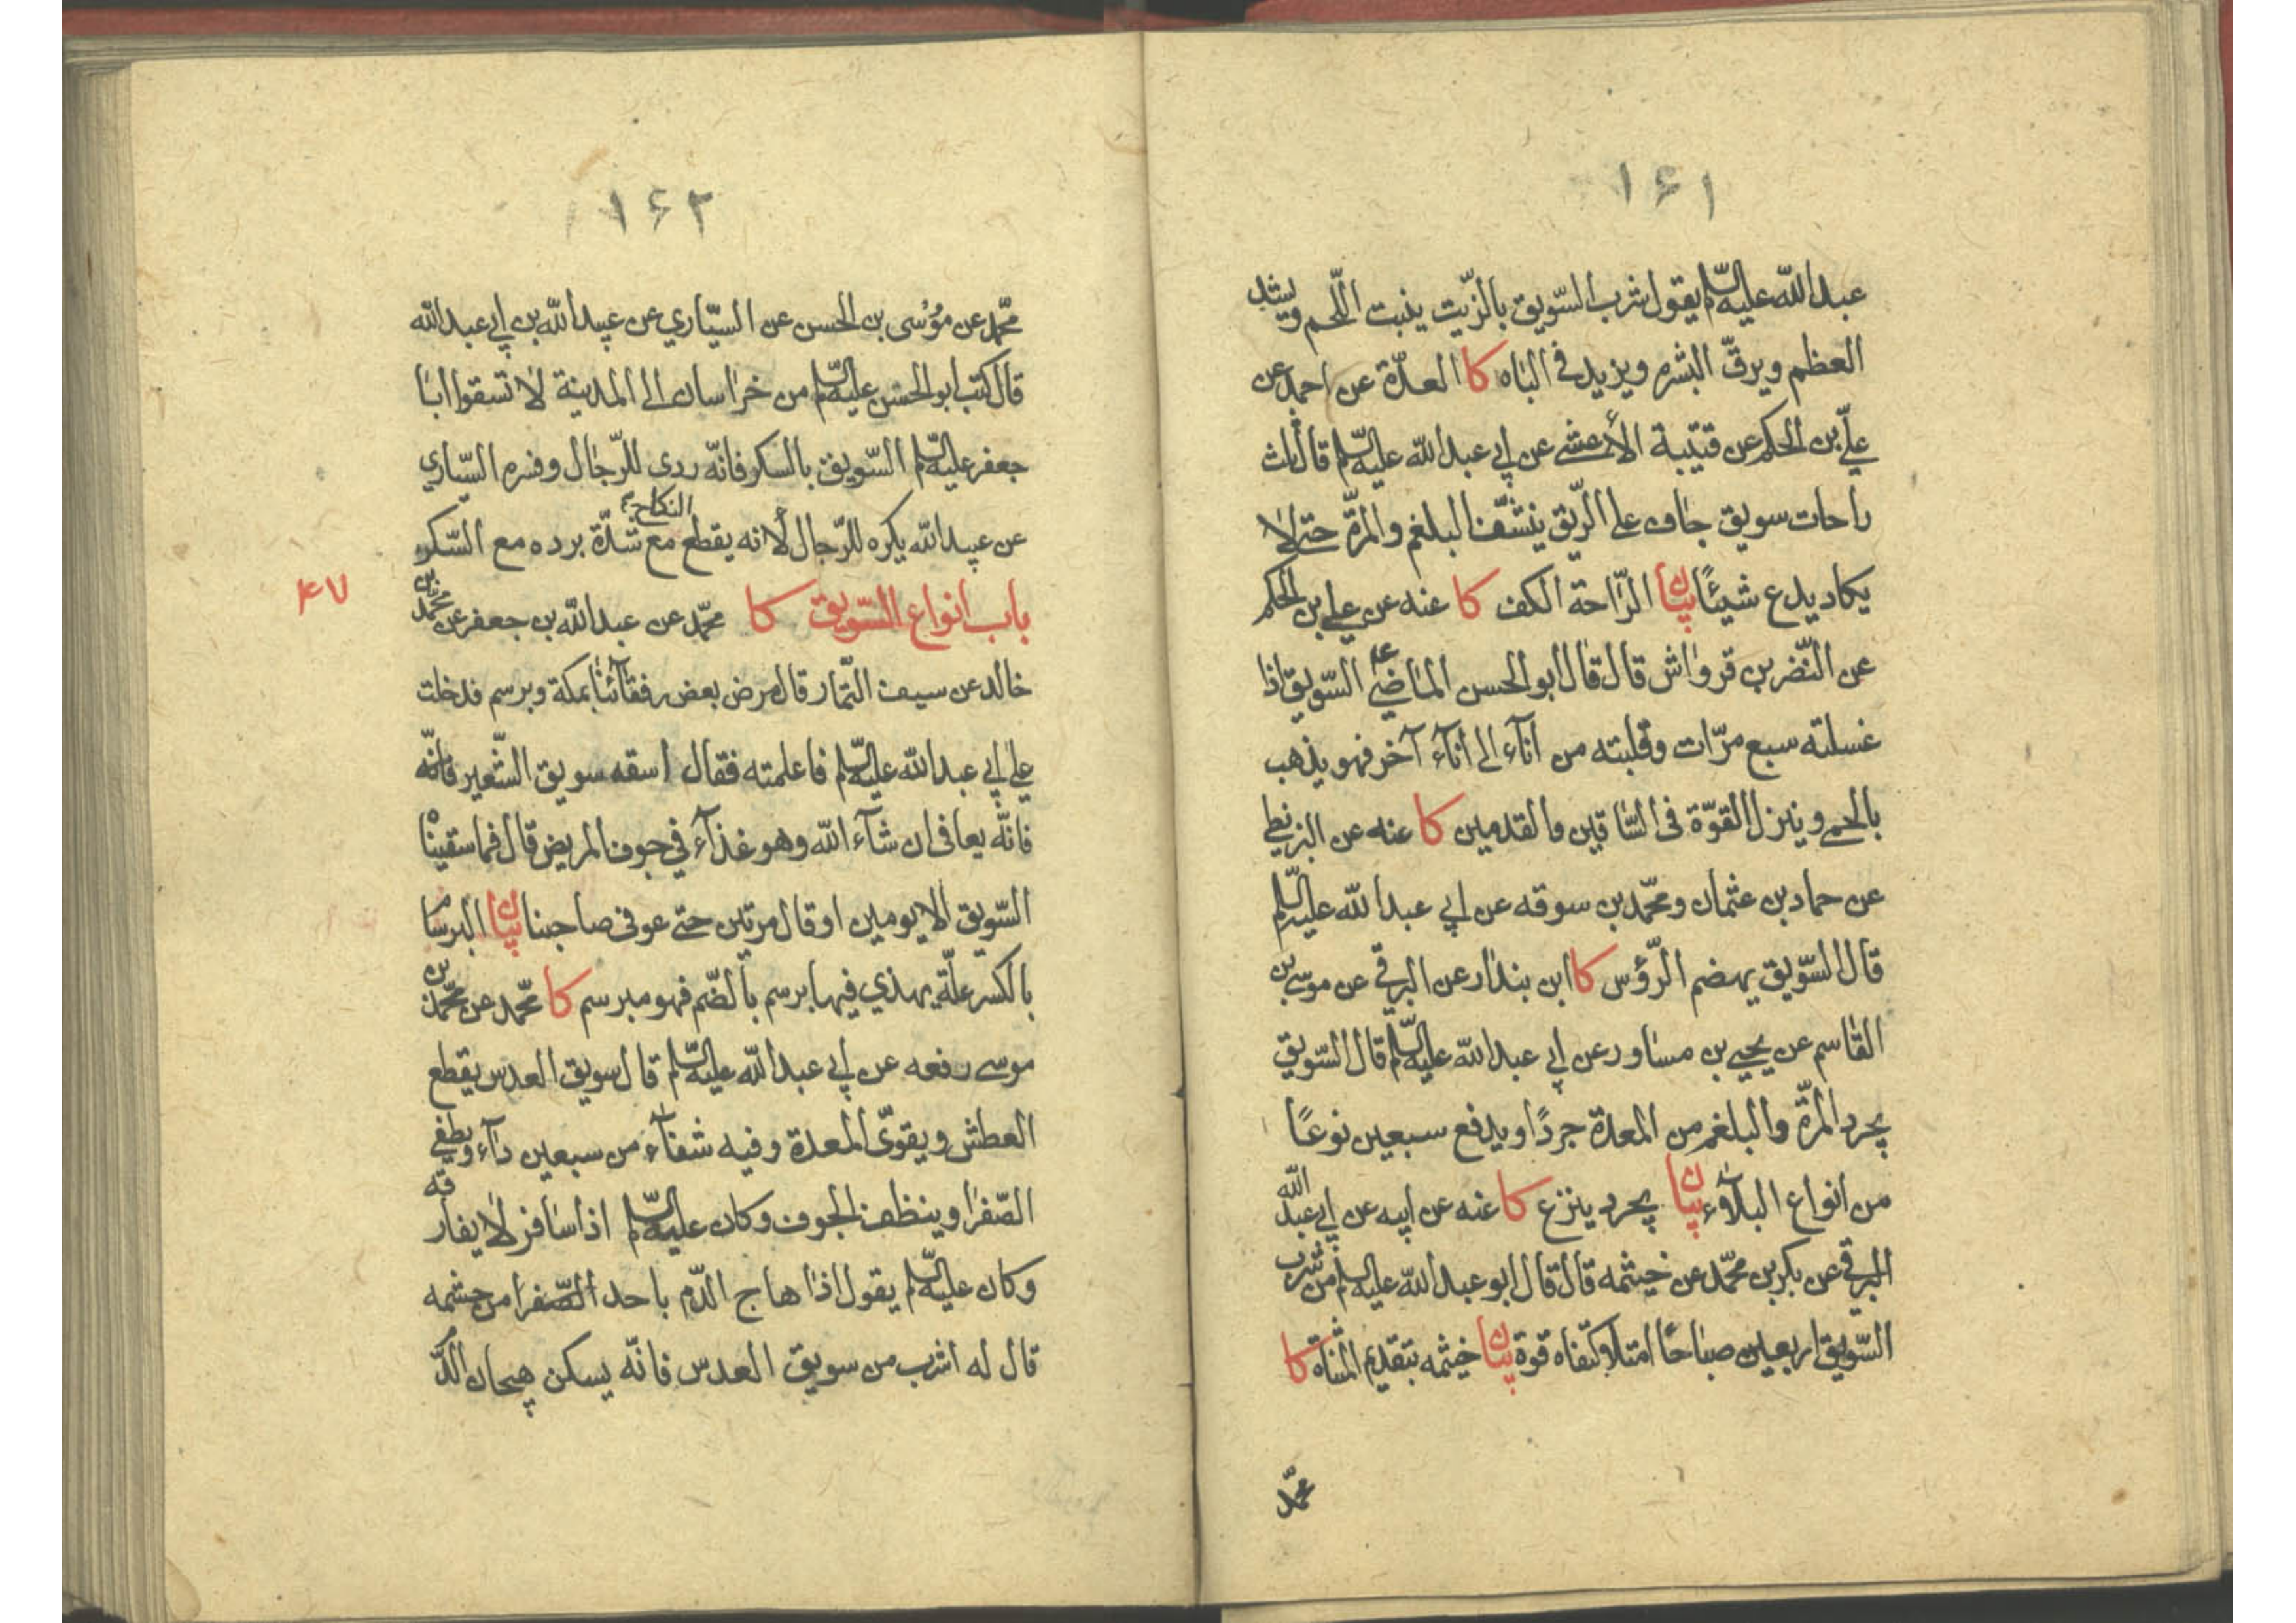 ١٦١
عبد الله عليه السلم يقول شرب السّويق بالزّيت ينبت اللّحم ويشد
العظم ويرقّ البشره ويزيد في الباه كا العدّة عن احمد عن
عليّ بن الحكم عن قتيبة الأعشى عن ابي عبد الله عليه السّلم قال ثلث
راحات سويق جاف على الرّيق ينشّف البلغم والمرّة حتى لا
يكاد يدع شيئًا بيان الرّاحة الكف كا عنه عن علي بن الحكم
عن النّضر بن قرواش قال قال ابو الحسن الماضي ع السّويق اذا
غسلته سبع مرّات وقلبته من انآء الى انآء آخر فهو يذهب
بالحمى وينزل القوّة فى السّاقين والقدمين كا عنه عن البزنطي
عن حماد بن عثمان ومحمّد بن سوقه عن ابي عبد الله عليه السّلم
قال السّويق يهضم الرّؤس كا ابن بندار عن البرقي عن موسى بن
القاسم عن يحيى بن مساور عن ابي عبد الله عليه السّلم قال السّويق
يجرد المرّة والبلغم من المعدة جردًا ويدفع سبعين نوعًا
من انواع البلآء بيان يجرد ينزع كا عنه عن ابيه عن ابي عبد الله
البرقي عن بكر بن محمّد عن خيثمه قال قال ابو عبد الله عليه السلم من شرب
السّويق اربعين صباحًا امتلأ كتفاه قوة بيان خيثمه بتقديم المثناة كا
محمّد
١٦٢
محمّد عن مؤسى بن الحسن عن السيّاري عن عبيد الله بن ابي عبد الله
قال كتب ابو الحسن عليه السّلم من خراسان الى المدينة لا تسقوا ابا
جعفر عليه السّلم السّويق بالسكر فانّه ردي للرّجال وفسره السيّاري
عن عبيد الله يكره للرّجال لأنه يقطع النكاح مع شدّة برده مع السّكر
باب انواع السّويق كا محمّد عن عبد الله بن جعفر عن محمّد بن
٤٧
خالد عن سيف التّمار قال مرض بعض رفقآئنا بمكة وبرسم فدخلت
على ابي عبد الله عليه السّلم فاعلمته فقال اسقه سويق الشّعير فانّه
فانّه يعافى ان شآء الله وهو غذآء في جوف المريض قال فما سقيناه
السّويق الا يومين او قال مرتين حتى عوفى صاحبنا بيان البرسام
بالكسر علّة يهذي فيها برسم بالضّم فهو مبرسم كا محمّد عن محمّد بن
موسى رفعه عن ابي عبد الله عليه السّلم قال سويق العدس يقطع
العطش ويقوّى المعدة وفيه شفآء من سبعين دآء ويطفي
الصّفرا وينظف الجوف وكان عليه السّلم اذا سافر لا يفارقه
وكان عليه السّلم يقول اذا هاج الدّم باحد الصّفرا من حشمه
قال له اشرب من سويق العدس فانّه يسكن هيجان الدّم